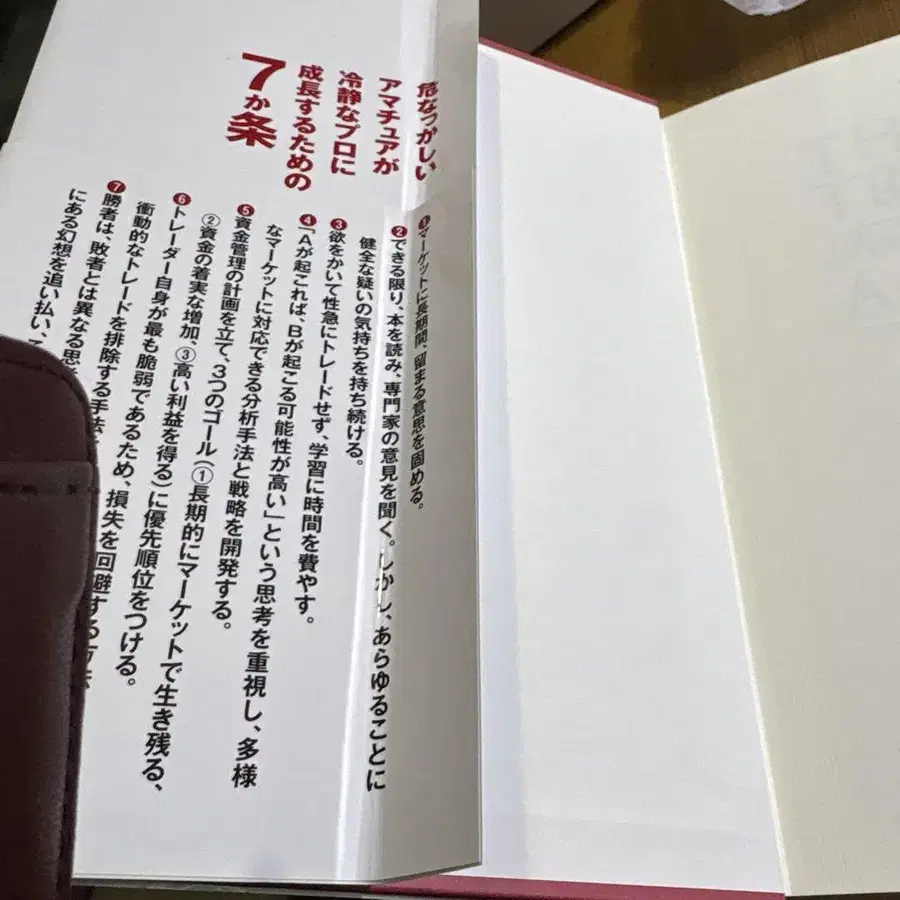 危なっかしい
アマチュアが
冷静なプロに
成長するための
7か条
❶マーケットに長期間、留まる意思を固める。
❷できる限り、本を読み、専門家の意見を聞く。しかし、あらゆることに
健全な疑いの気持ちを持ち続ける。
❸欲をかいて性急にトレードせず、学習に時間を費やす。
❹「Aが起これば、Bが起こる可能性が高い」という思考を重視し、多様
なマーケットに対応できる分析手法と戦略を開発する。
❺資金管理の計画を立て、3つのゴール(①長期的にマーケットで生き残る、
②資金の着実な増加、③高い利益を得る)に優先順位をつける。
❻トレーダー自身が最も脆弱であるため、損失を回避する方法
衝動的なトレードを排除する手法
❼勝者は、敗者とは異なる思
にある幻想を追い払い、